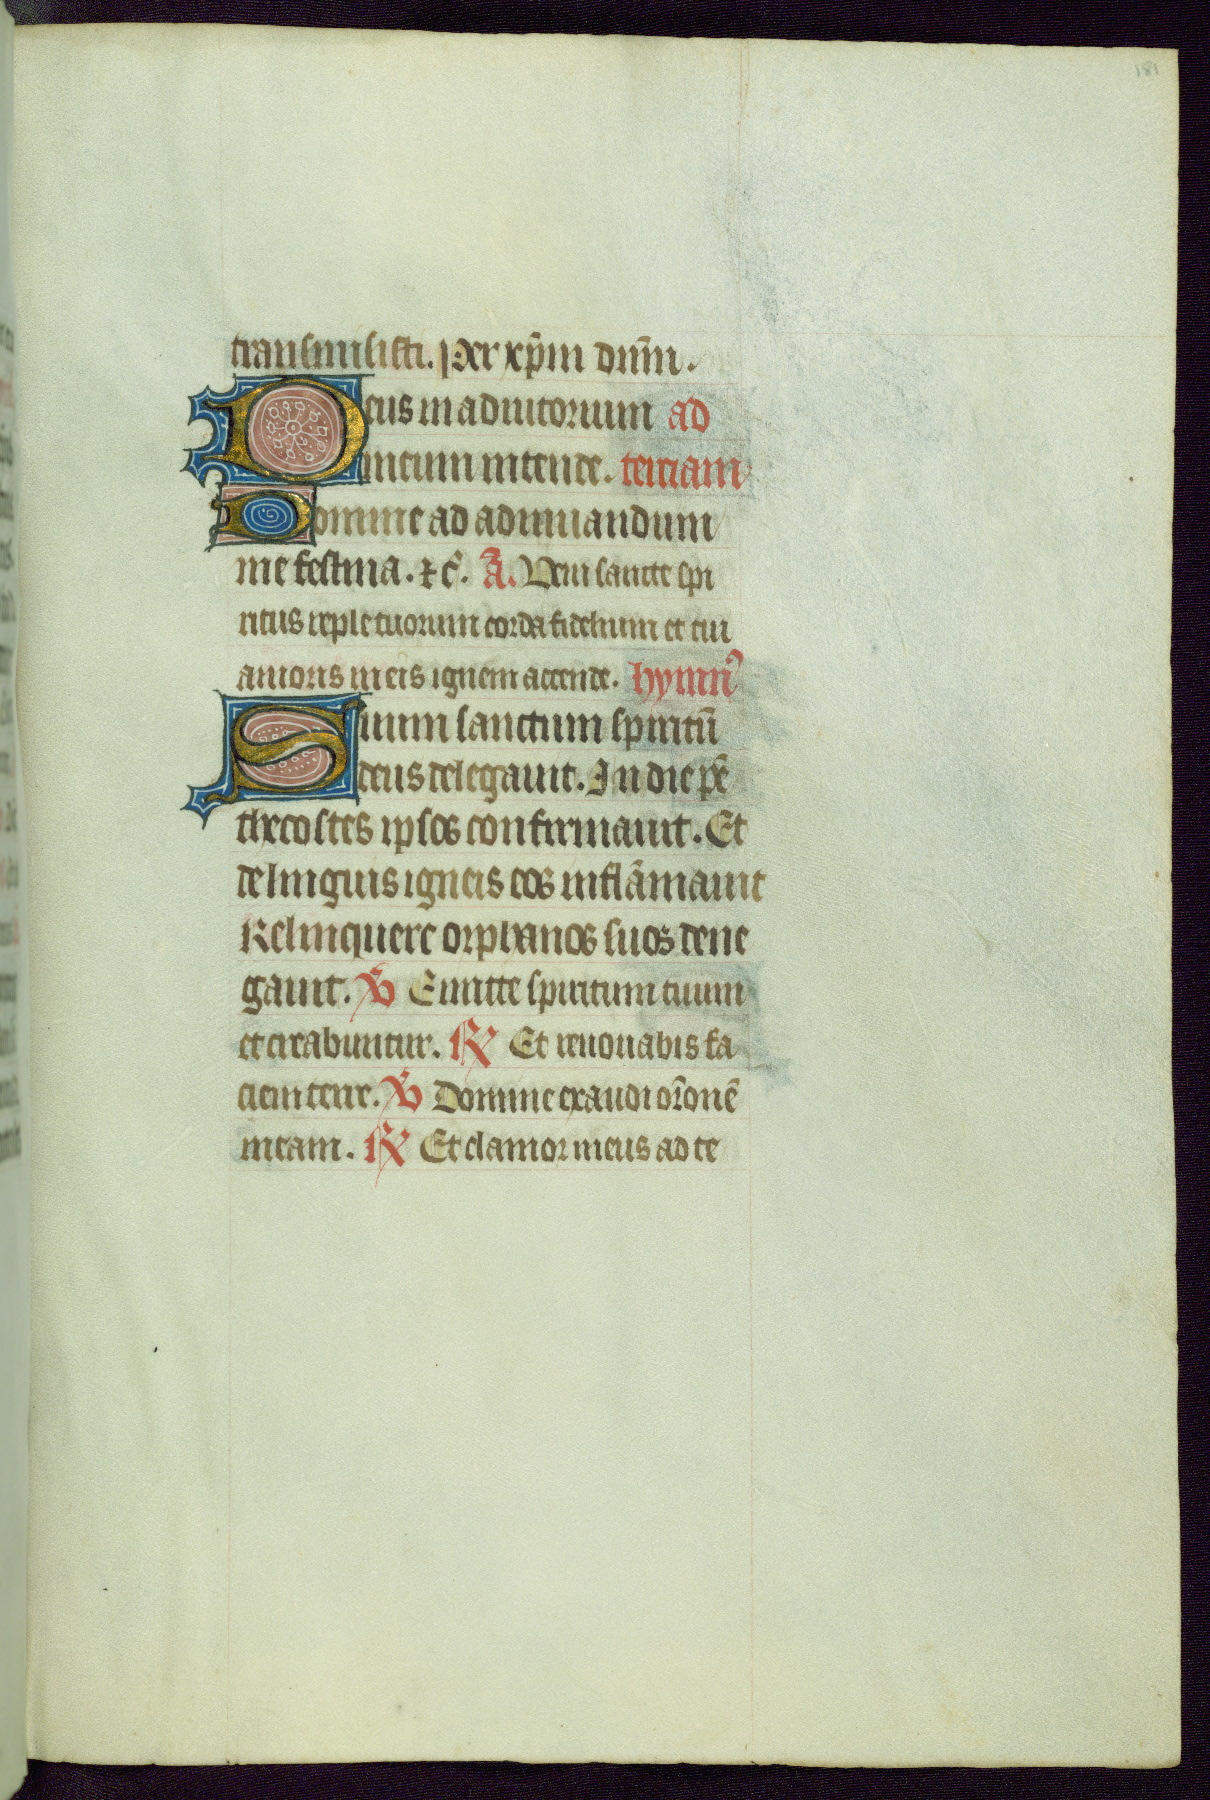 181
transmisisti. Per xp̄m dn̄m.
Deus in adiutorium ad
meum intende. terciam
Domine ad adiuuandum
me festina. ⁊c̄. A. Veni sancte spi
ritus reple tuorum corda fidelium et tui
amoris in eis ignem accende. hymn᾽
Suum sanctum spiritū
deus delegauit. In die pē
thecostes ipsos confirmauit. Et
de linguis igneis eos inflāmauit
Relinquere orphanos suos dene
gauit. ℣ Emitte spiritum tuum
et creabuntur. ℟ Et renouabis fa
ciem terre. ℣ Domine exaudi or̄onē
meam. ℟ Et clamor meus ad te